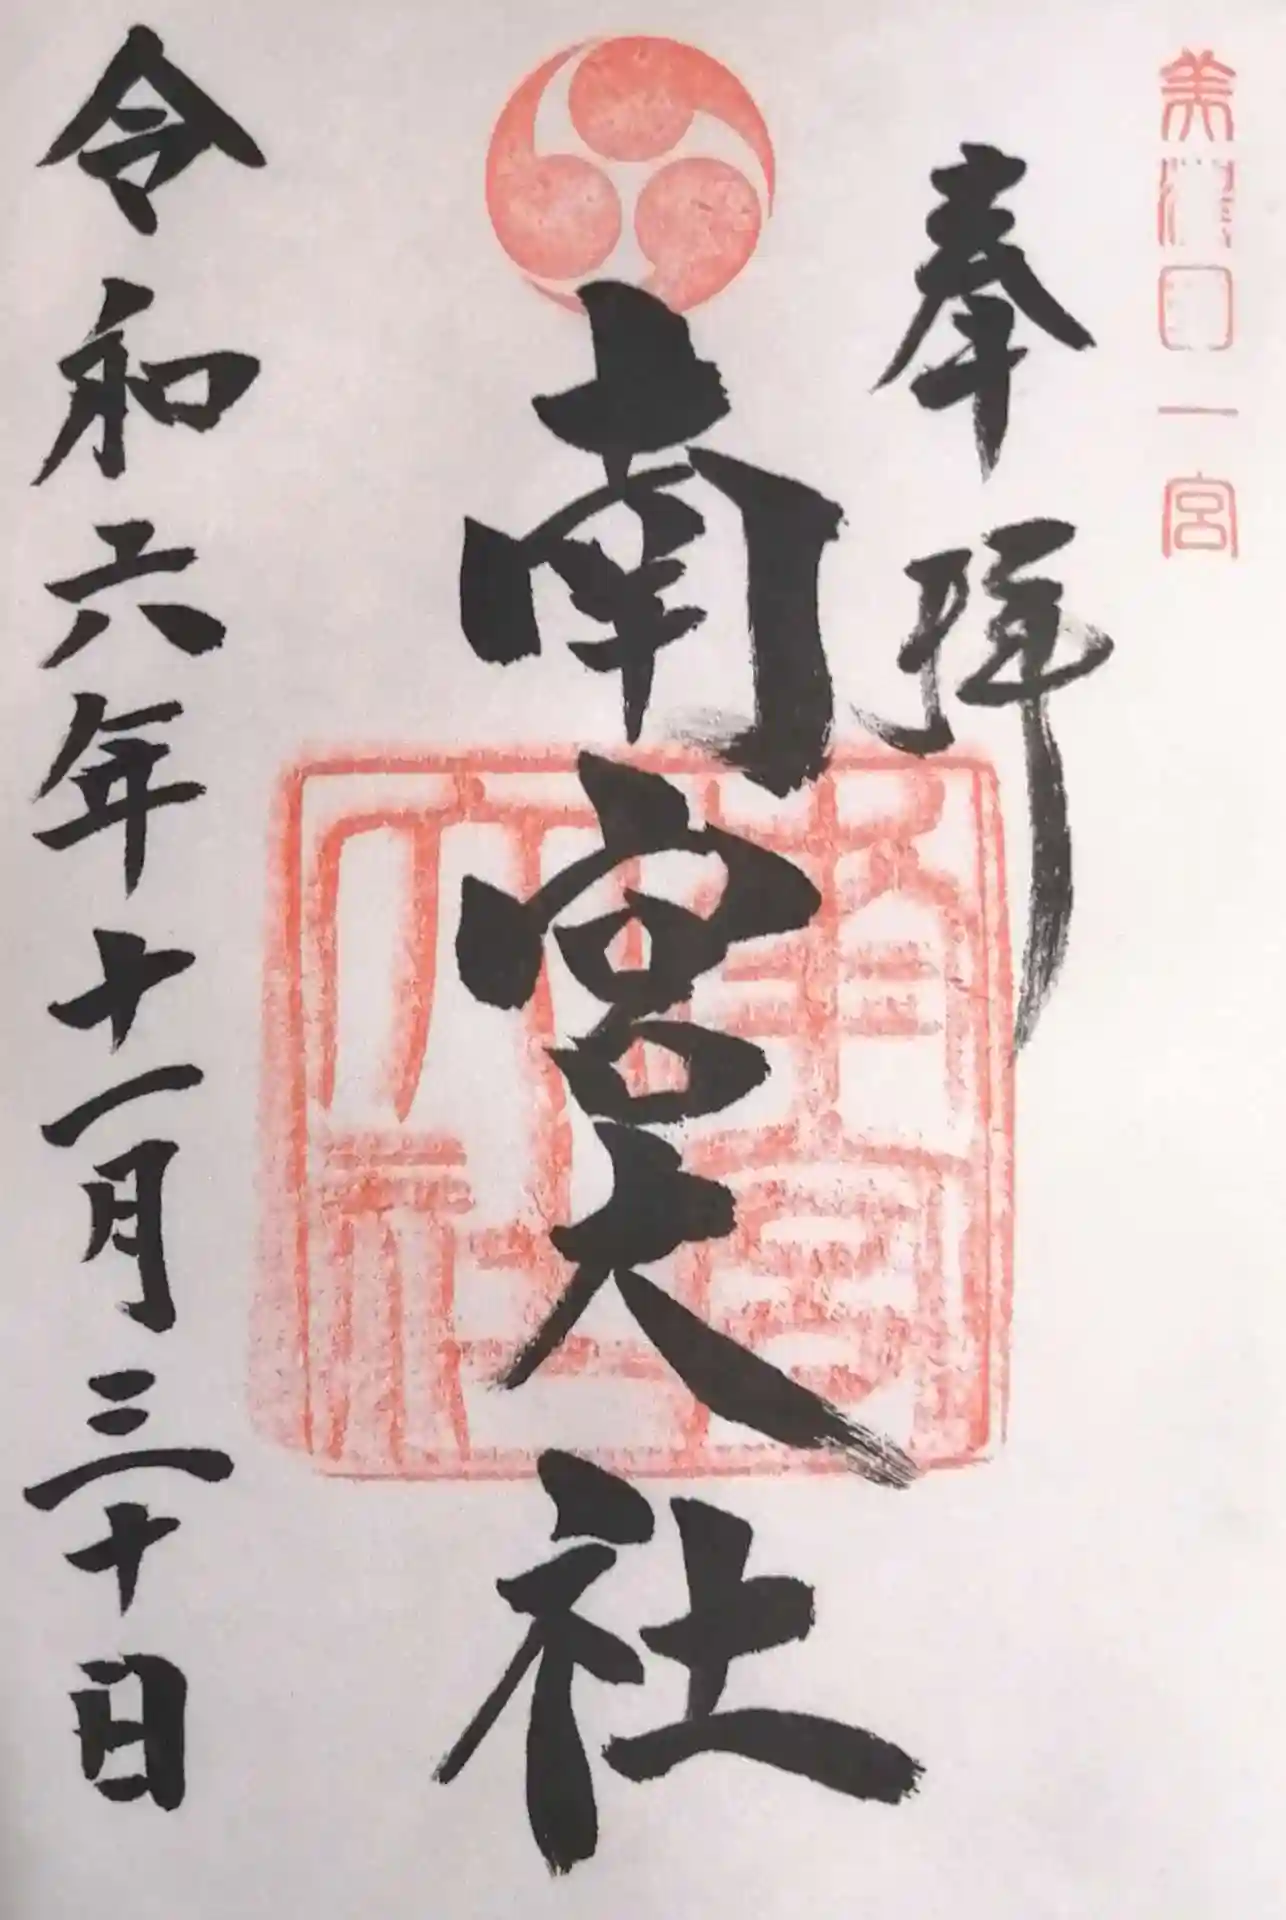 美濃国一宮
奉拝
南宮大社
令和六年十一月三十日